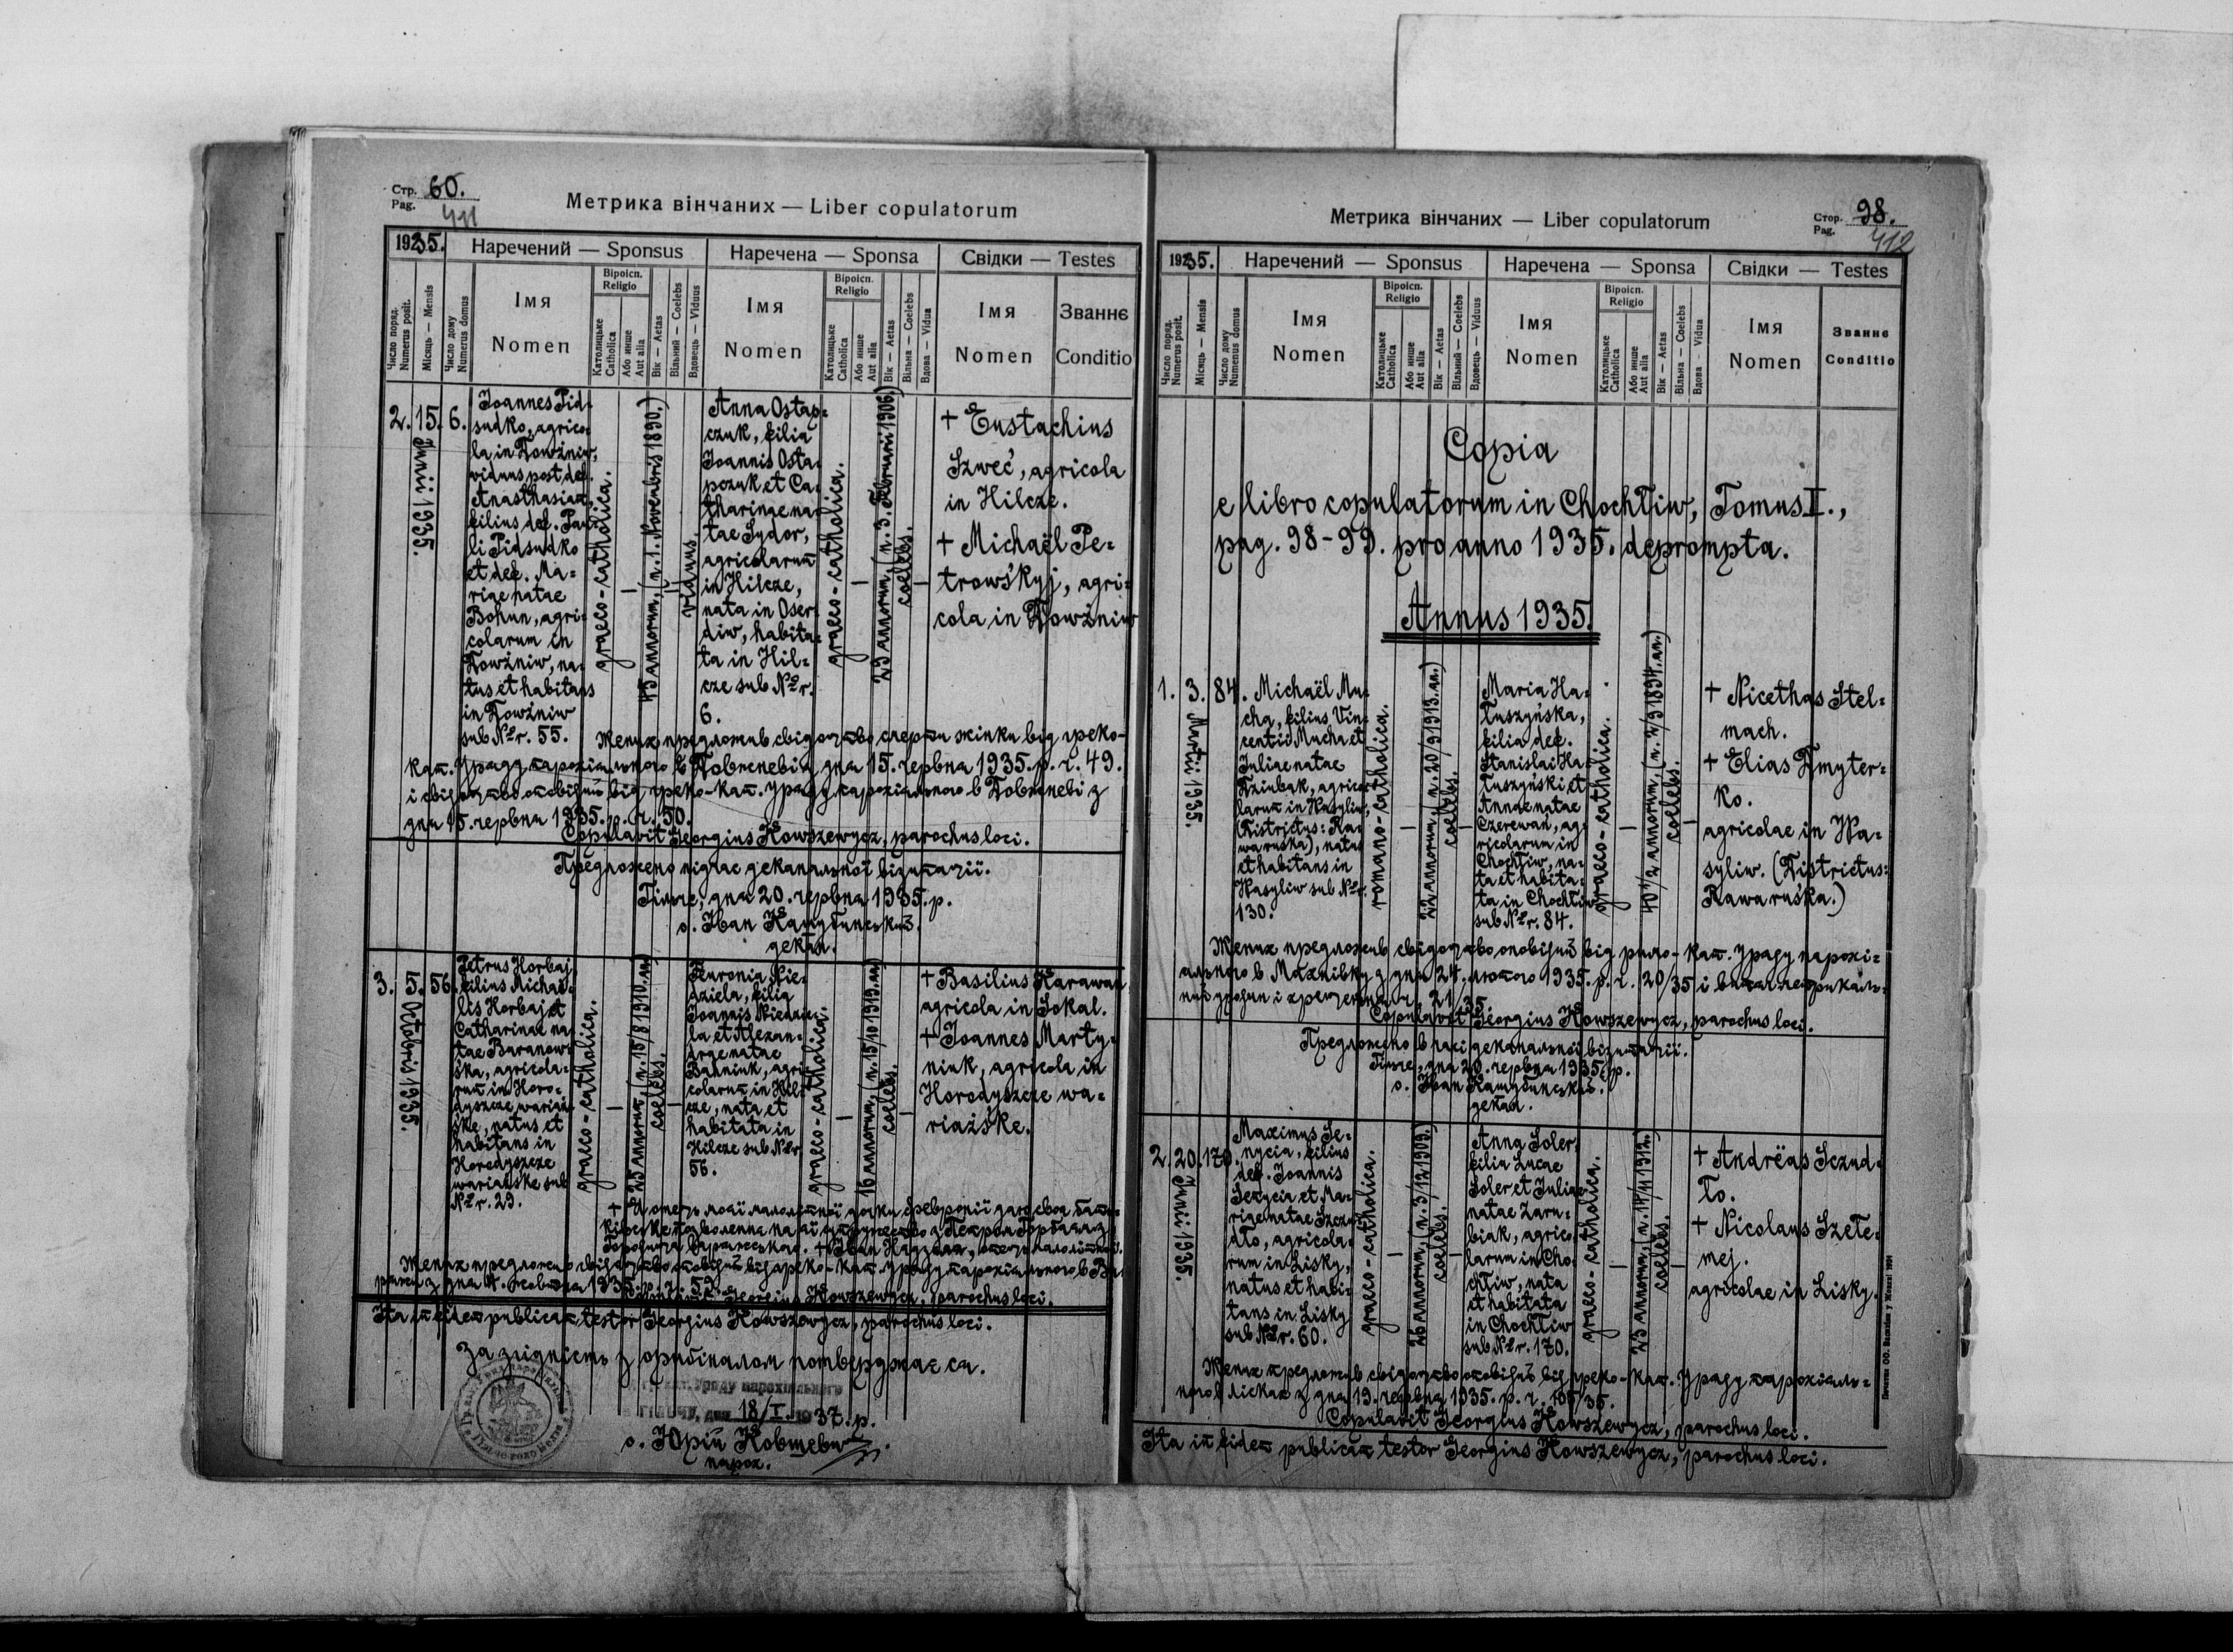 Стр. 60.
Pag.
411
Метрика вінчаних — Liber copulatorum
1935.
Наречений — Sponsus
Наречена — Sponsa
Свідки — Testes
Число поряд.
Numerus posit.
Місяць — Mensis
Число дому
Numerus domus
Імя
Nomen
Віроісп.
Religio
Католицьке
Catholica
Або инше
Aut alia
Вік — Aetas
Вільний — Coelebs
Вдовець — Viduus
Імя
Nomen
Віроісп.
Religio
Католицьке
Catholica
Або инше
Aut alia
Вік — Aetas
Вільна — Coelebs
Вдова — Vidua
Імя
Nomen
Званнє
Conditio
2.
15.
Junii 1935.
6.
Joannes Pid-
sudko, agrico-
la in Dowżniw,
viduus post def.
Anasthasiam,
filius def. Pau-
li Pidsudko
et def. Ma-
riae natae
Bohun, agri-
colarum in
Dowżniw, na-
tus et habitans
in Dowżniw
sub № r. 55.
graeco-catholica.
—
45 annorum, (n. 1. Novembris 1890.)
—
viduus.
Anna Ostap-
czuk, filia
Joannis Osta-
pczuk et Ca-
tharinae na-
tae Sydor,
agricolarum
in Hilcze,
nata in Oser-
diw, habita-
ta in Hil-
cze sub № r.
6.
graeco-catholica.
—
29 annorum, (n. 3. Februarii 1906.)
coelebs.
—
+ Eustachius
Szweć, agricola
in Hilcze.
+ Michaël Pe-
trowśkyj, agri-
cola in Dowżniw
Жених предложив свідоцтво смерти жінки від греко-
кат. Уряду парохіяльного в Довжневі з дня 15. червня 1935. р. ч. 49.
і свідоцтво оповідий від греко-кат. Уряду парохіяльного в Довжневі з
дня 15. червня 1935. р. ч. 50.
Copulavit Georgius Kowszewycz, parochus loci.
Предложено підчас деканальної візитації.
Гільче, дня 20. червня 1935. р.
о. Іван
декан.
3.
5.
Octobris 1935.
56.
Petrus Horbaj,
filius Michaë-
lis Horbaj et
Catharinae na-
tae Baranow-
ska, agricola-
rum in Horo-
dyszcze wariaź-
ske, natus et
habitans in
Horodyszcze
wariaźske sub
№ r. 29.
graeco-catholica.
—
25 annorum, (n. 15/8 1910. an)
coelebs.
—
Feuronia Nie-
dziela, filia
Joannis Niedzie-
la et Alexan-
drae natae
Bahniuk, agri-
colarum in Hil-
cze, nata et
habitata in
Hilcze sub № r.
56.
graeco-catholica.
—
16 annorum, (n. 15/10 1919. an)
coelebs.
—
+ Basilius Karawan
agricola in Sokal.
+ Joannes Marty-
niuk, agricola in
Horodyszcze wa-
riaźske.
+ Я отець моєї малолітної дочки Февронії даю своє бать-
ківське позволення на її супружество з Петром Горбаєм з
Городища Варяжського. + Іван Надзеля, отець малолітної.
Жених предложив свідоцтво оповідий від греко-кат. Уряду парохіяльного в Ва-
ряжі з дня 4. жовтня 1935. р. ч. 59.
Copulavit Georgius Kowszewycz, parochus loci.
Ita in fidem publicam testor Georgius Kowszewycz, parochus loci.
За згідність з оригіналом потверджає ся.
Уряду парохіяльного
дня 18/I. 1937. р.
о. Юрій Ковшевич
парох.
Стор. 98.
Pag.
412
Метрика вінчаних — Liber copulatorum
1935.
Наречений — Sponsus
Наречена — Sponsa
Свідки — Testes
Число поряд.
Numerus posit.
Місяць — Mensis
Число дому
Numerus domus
Імя
Nomen
Віроісп.
Religio
Католицьке
Catholica
Або инше
Aut alia
Вік — Aetas
Вільний — Coelebs
Вдовець — Viduus
Імя
Nomen
Віроісп.
Religio
Католицьке
Catholica
Або инше
Aut alia
Вік — Aetas
Вільна — Coelebs
Вдова — Vidua
Імя
Nomen
Званнє
Conditio
Copia
e libro copulatorum in Chochłiw, Tomus I.,
pag. 98-99. pro anno 1935. deprompta.
Annus 1935.
1.
3.
Martii 1935.
84.
Michaël Mu-
cha, filius Vin-
centii Mucha et
Juliae natae
Dziubak, agrico-
larum in Wasyliw,
(Districtus: Ra-
wa ruska), natus
et habitans in
Wasyliw sub № r.
130.
romano-catholica.
—
22 annorum, (n. 20/9 1913. an.)
coelebs.
—
Maria Ha-
łuszyńska,
filia def.
Stanislai Ha-
łuszyński et
Annae natae
Czerewan, ag-
ricolarum in
Chochłiw, na-
ta et habita-
ta in Chochłiw
sub № r. 84.
graeco-catholica.
—
40 1/2 annorum, (n. 2/9 1894. an.)
coelebs.
—
+ Nicethas Stel-
mach.
+ Elias Dmyter-
ko.
agricolae in Wa-
syliw. (Districtus:
Rawa ruśka.)
Жених предложив свідоцтво оповідий від римо-кат. Уряду парохі-
яльного в Махнівку з дня 24. лютого 1935. р. ч. 20/35 і витяг метрикаль-
ний уродин і хрещення ч. 21/35.
Copulavit Georgius Kowszewycz, parochus loci.
Предложено в часі деканальної візитації.
Гільче, дня 20. червня 1935. р.
о. Іван
декан.
2.
20.
Junii 1935.
170.
Maximus Se-
nycia, filius
def. Joannis
Senycia et Ma-
riae natae Szczud-
ło, agricola-
rum in Lisky,
natus et habi-
tans in Lisky
sub № r. 60.
graeco-catholica.
—
26 annorum, (n. 3/12 1909.)
coelebs.
—
Anna Soler,
filia Lucae
Soler et Juliae
natae Zaru-
biak, agrico-
larum in Cho-
chłiw, nata
et habitata
in Chochłiw
sub № r. 170.
graeco-catholica.
—
23 annorum, (n. 14/11 1912.)
coelebs.
—
+ Andrëas Sczud-
ło.
+ Nicolaus Szete-
mej.
agricolae in Lisky.
Жених предложив свідоцтво оповідий від греко-кат. Уряду парохіяль-
ного в Лісках з дня 19. червня 1935. р. ч. 105/35.
Copulavit Georgius Kowszewycz, parochus loci.
Ita in fidem publicam testor Georgius Kowszewycz, parochus loci.
Печатня ОО. Василіян у Жовкві